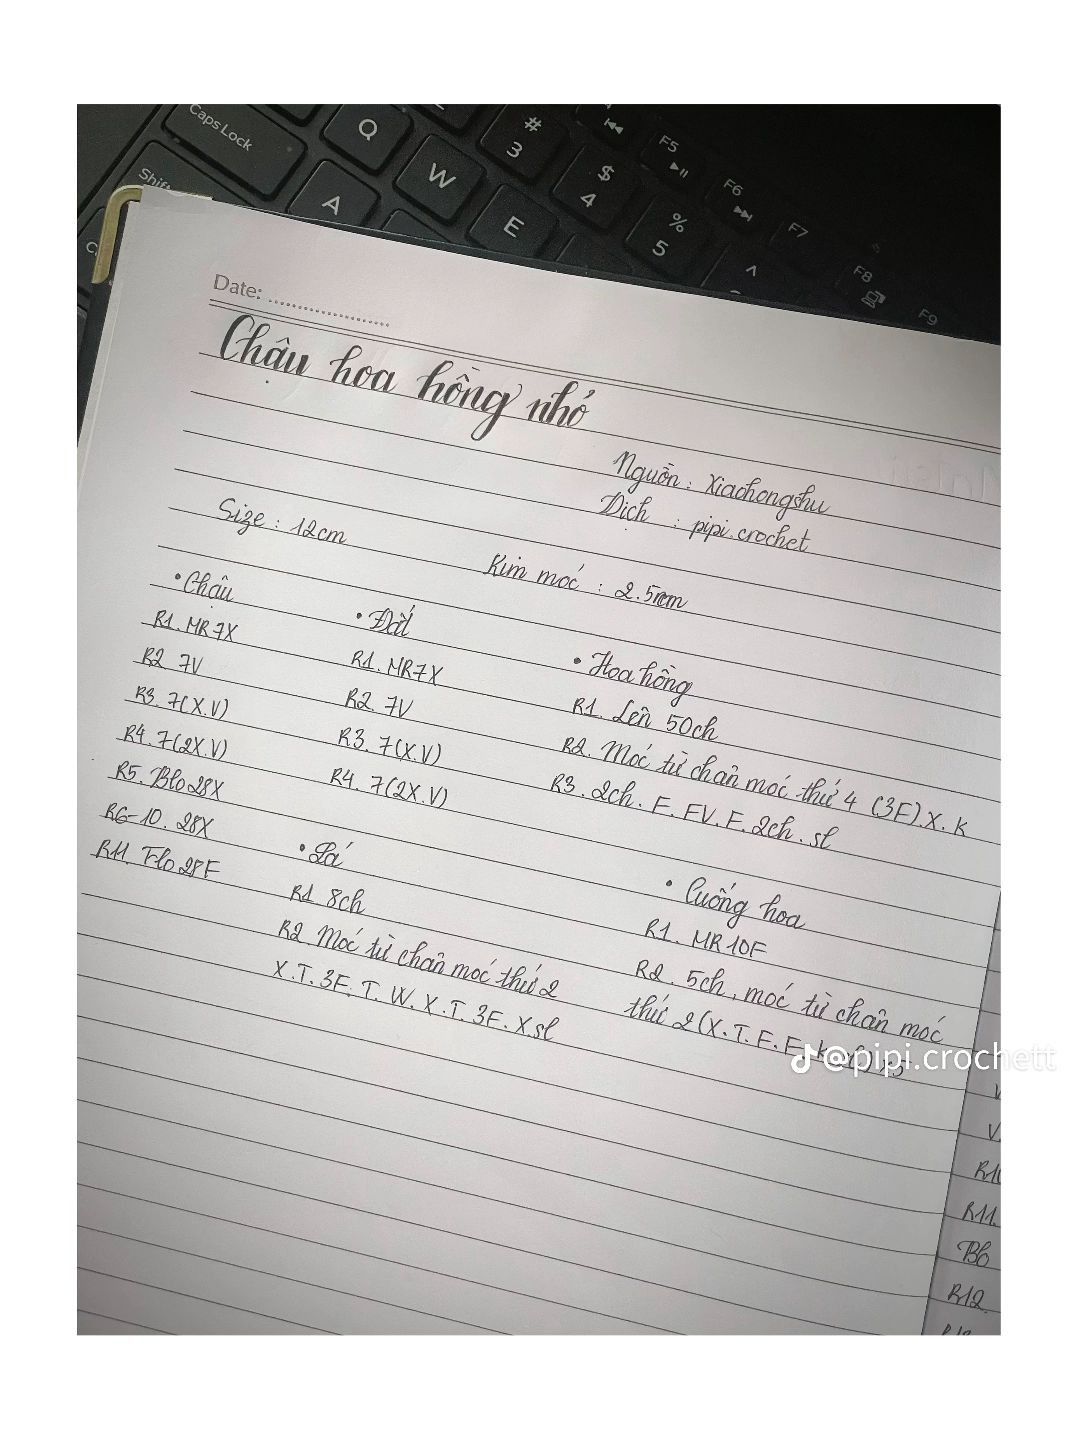 Caps Lock
Q
W
#
3
$
4
F5
F6
F7
F8
F9
Shift
A
E
%
5
^
Date:
Chậu hoa hồng nhỏ
Nguồn : Xiaohongshu
Dịch : pipi.crochet
Size : 12cm
Kim móc : 2.5mm
• Chậu
R1. MR7X
R2 7V
R3. 7(X.V)
R4. 7(2X.V)
R5. Blo 28X
R6-10. 28X
R11. Flo 28F
• Đất
R1. MR7X
R2. 7V
R3. 7(X.V)
R4. 7(2X.V)
• Hoa hồng
R1. Lên 50ch
R2. Móc từ chân móc thứ 4 (3F).X.K
R3. 2ch. F. FV. F. 2ch. sl
• Lá
R1 8ch
R2 Móc từ chân móc thứ 2
X.T. 3F. T. W. X.T. 3F. X sl
• Cuống hoa
R1. MR10F
R2. 5ch, móc từ chân móc
thứ 2 (X.T.F.F
@pipi.crochett
V.
R10
R11.
Blo
R12.